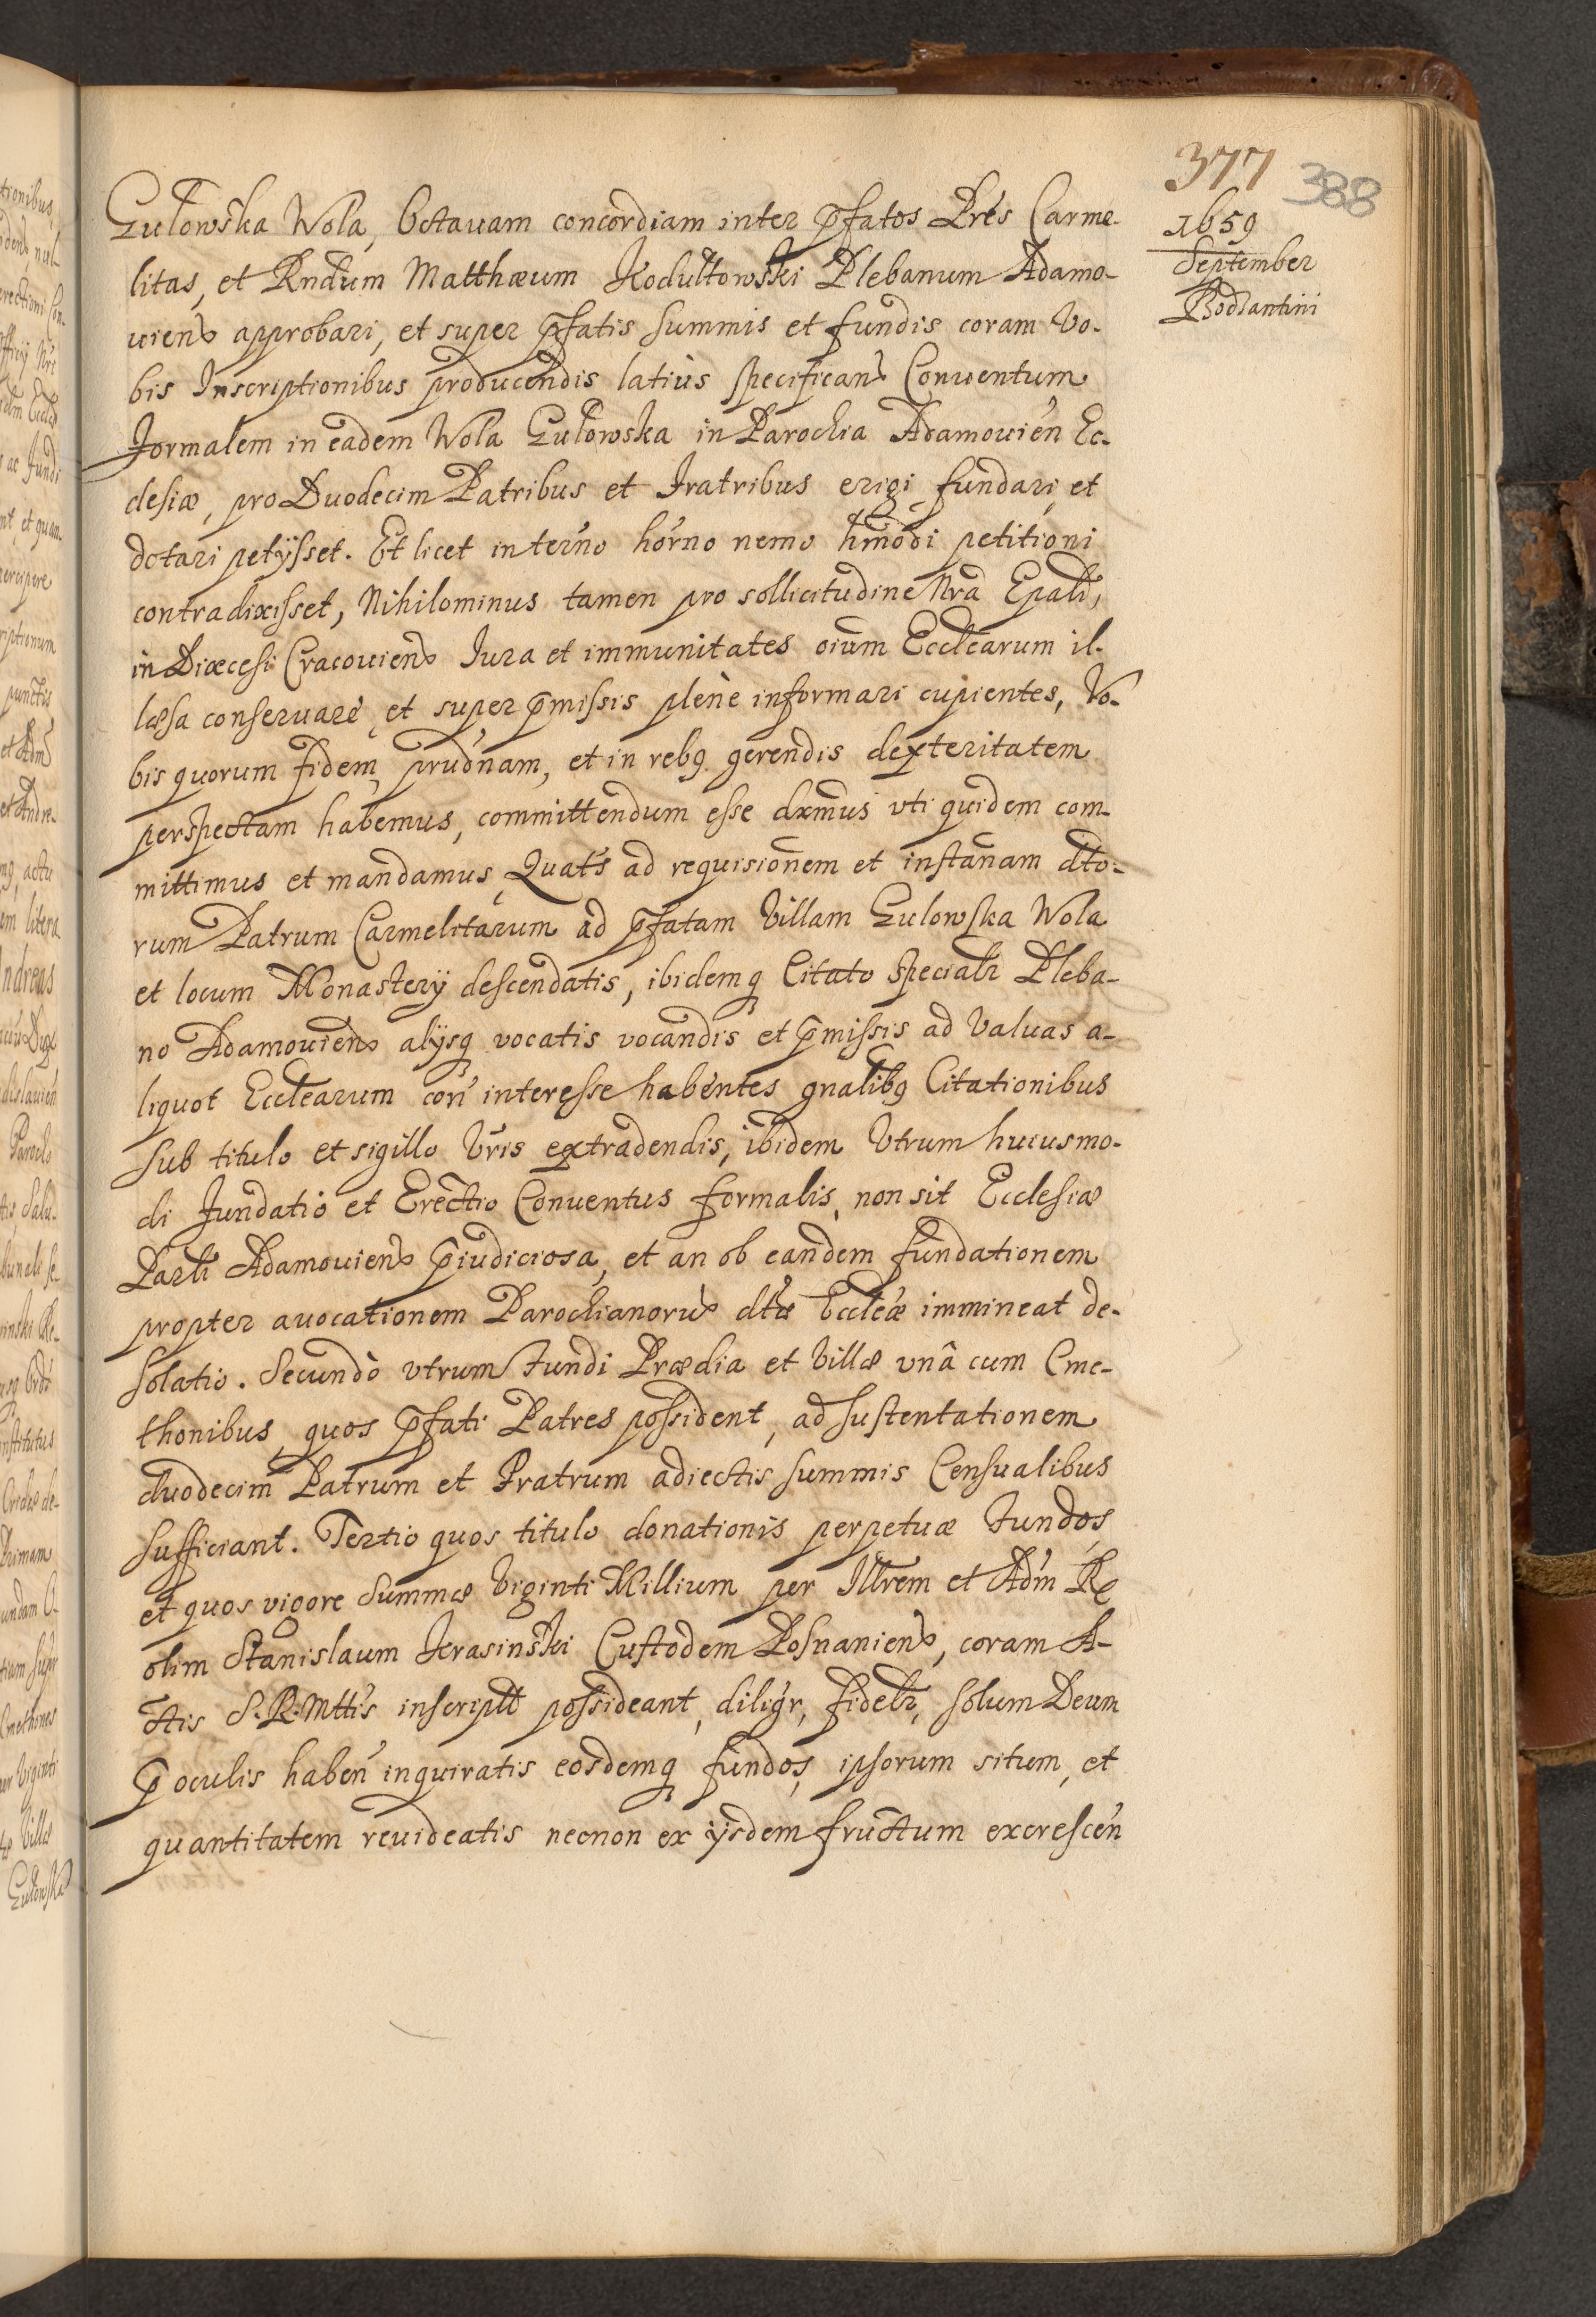 377 388
1659
September
Bodzantini
Gułowska Wola, Octauam concordiam inter p̄fatos Pr̃es Carme-
litas, et Rndum Matthæum Kodułtowski Plebanum Adamo-
uien̄ approbari, et super p̄fatis summis et fundis coram Vo-
bis Inscriptionibus producendis latiùs specifican̄ Conuentum
Formalem in eadem Wola Gułowska in Parochia Adamouien̄ Ec-
clesiæ, pro Duodecim Patribus et Fratribus erigi, fundari, et
dotari petijsset. Et licet in ter̃no hor̃no nemo hm̃odi petitioni
contradixisset, Nihilominus tamen pro sollicitudine Nrã Epali,
in Diæcesi Cracouien̄ Iura et immunitates oium Eccl̃earum il-
læsa conseruare, et super p̄missis plenè informari cupientes, Vo-
bis quorum fidem, prudñam, et in rebq gerendis dexteritatem
perspectam habemus, committendum esse dxm̃us vti quidem com-
mittimus et mandamus, Quat̃s ad requisiōnem et instan̄am dto-
rum Patrum Carmelitarum ad p̄fatam Villam Gulowska Wola
et locum Monasterij descendatis, ibidemq Citato specialr Pleba-
no Adamouien̄ alijsq vocatis vocandis et p̄missis ad Valuas a-
liquot Eccl̃earum coñ interesse habentes gnãlibq Citationibus
sub titulo et sigillo Vr̃is extradendis, ibidem Vtrum huiusmo-
di Fundatio et Erectio Conuentus formalis, non sit Ecclesiæ
Parli Adamouien̄ p̄iudiciosa, et an ob eandem fundationem
propter auocationem Parochianorũ dtæ Eccl̃eæ immineat de-
solatio. Secundò vtrum Fundi Prædia et Villæ vnâ cum Cme-
thonibus, quos p̄fati Patres possident, ad sustentationem
duodecim Patrum et Fratrum adiectis summis Censualibus
sufficiant. Tertio quos titulo donationis perpetuæ Fundos,
et quos vigore Summæ Viginti Millium per Illrem et Adm̃ R̃
olim Stanislaum Krasinski Custodem Posnanien̄, coram A-
ctis S.R.Mttis inscript possideant, diligr, fidelr, solum Deum
p̄ oculis habeñ inquiratis eosdemq fundos, ipsorum situm, et
quantitatem reuideatis necnon ex ijsdem fructum excresceñ